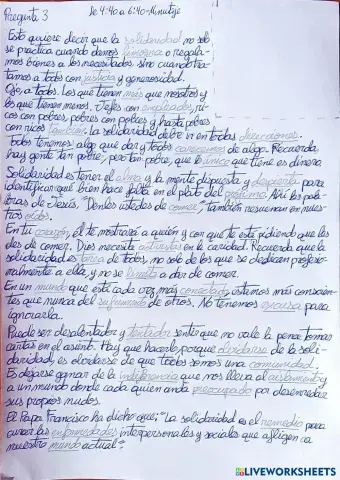 Pregunta 3 de 4:40 a 6:40-Minutaje
Esto quiere decir que la solidaridad no solo
se practica cuando damos limosna o regala-
mos bienes a los necesitados, sino cuando tra-
tamos a todos con justicia y generosidad.
Ojo, a todos. Los que tienen más que nosotros y
los que tienen menos. Jefes con empleados, ri-
cos con pobres, pobres con pobres y hasta pobres
con ricos también. La solidaridad debe ir en todas direcciones.
Todos tenemos algo que dar y todos carecemos de algo. Recuerda
hay gente tan pobre, pero tan pobre, que lo único que tiene es dinero.
Solidaridad es tener el alma y la mente dispuesta y despierta para
identificar qué bien hace falta en el plato del prójimo. Ahí las pala-
bras de Jesús, "Denles ustedes de comer", también resuenan en nues-
tros oídos.
En tu corazón, él te mostrará a quién y con qué te está pidiendo que les
des de comer. Dios necesita activistas en la caridad. Recuerda que la
solidaridad es tarea de todos, no solo de los que se dedican profesio-
nalmente a ella, y no se limita a dar de comer.
En un mundo que está cada vez más conectado, estamos más conscien-
tes que nunca del sufrimiento de otros. No tenemos excusa para
ignorarla.
Puede ser desalentador y tentador sentir que no vale la pena tomar
cartas en el asunto. Hay que hacerlo, porque olvidarse de la soli-
daridad, es olvidarse de que todos somos una comunidad.
Es dejarse ganar de la indiferencia que nos lleva al aislamiento y
a un mundo donde cada quien anda preocupado por desenredar
sus propios nudos.
El Papa Francisco ha dicho que: "La solidaridad es el remedio para
curar las enfermedades interpersonales y sociales que afligen a
nuestro mundo actual".
LIVEWORKSHEETS